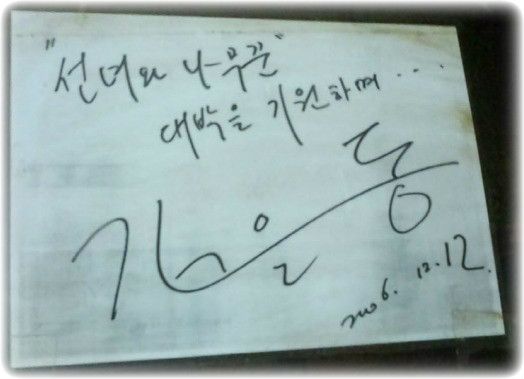 "선녀와 나무꾼"
대박을 기원하며...
김을동
2006. 12. 12.